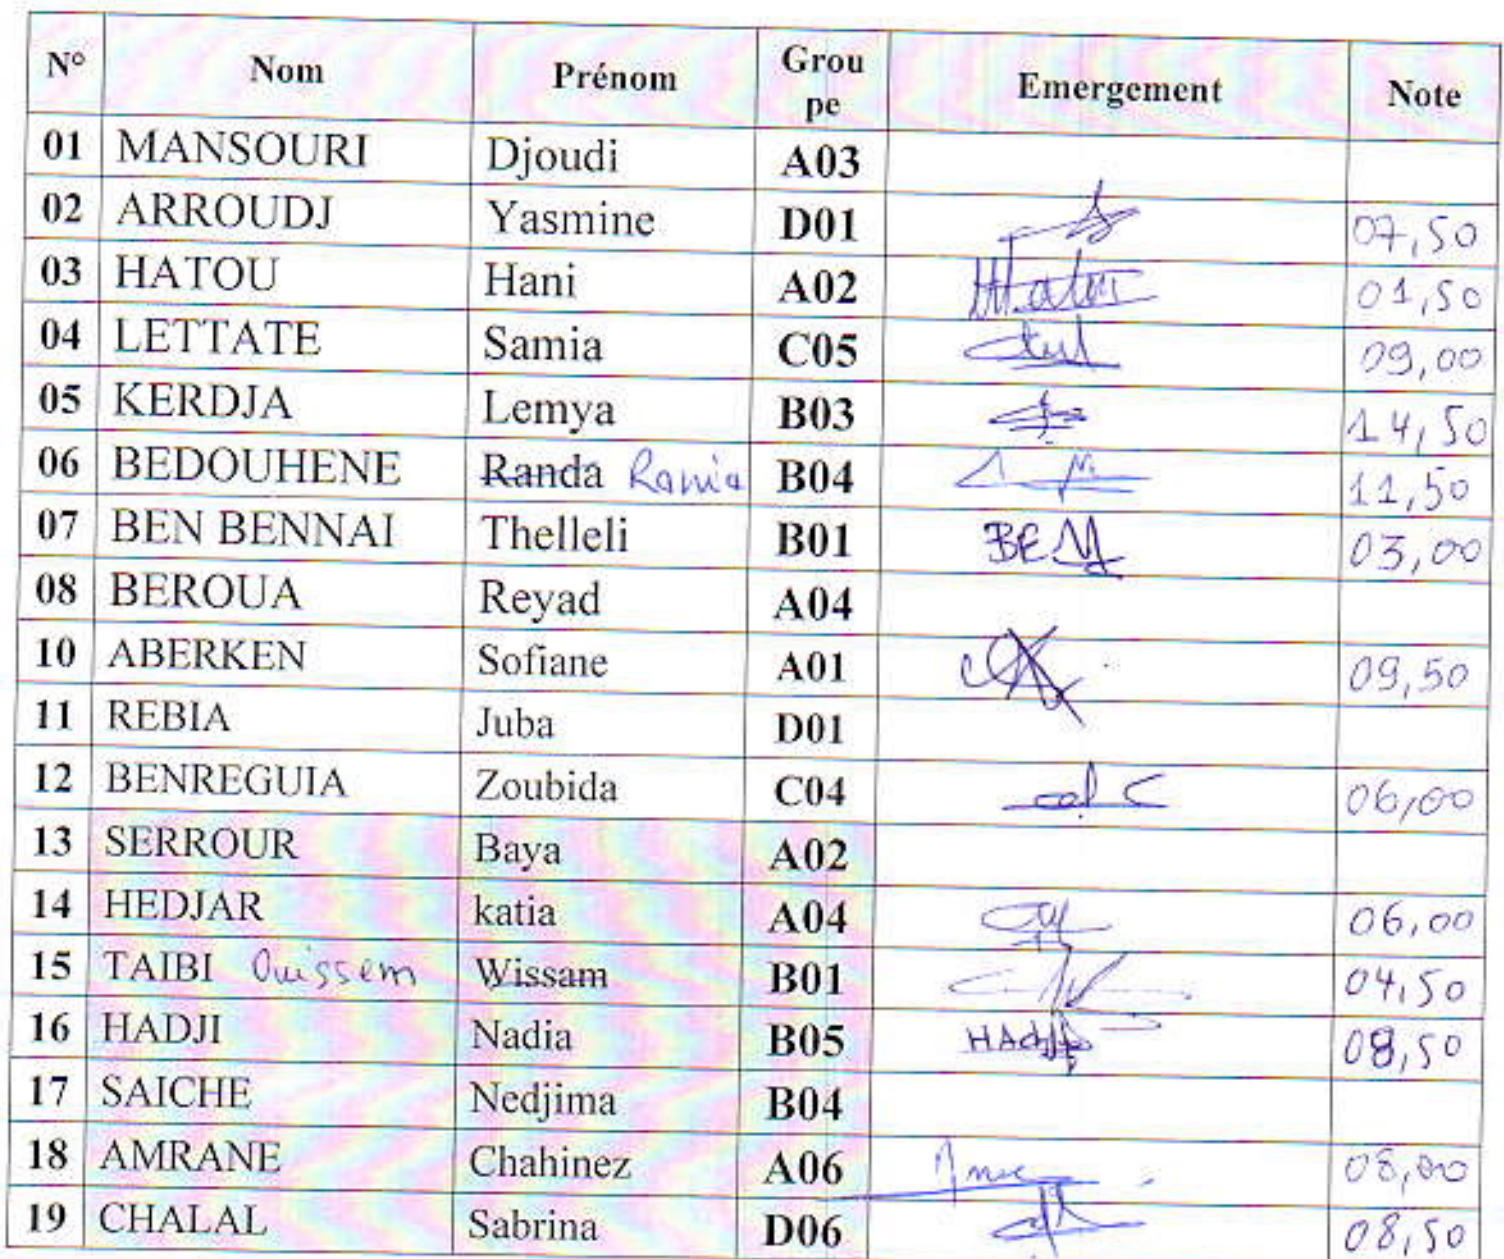 N° Nom Prénom Grou pe Emergement Note
01 MANSOURI Djoudi A03
02 ARROUDJ Yasmine D01 07,50
03 HATOU Hani A02 01,50
04 LETTATE Samia C05 09,00
05 KERDJA Lemya B03 14,50
06 BEDOUHENE Randa Rania B04 11,50
07 BEN BENNAI Thelleli B01 03,00
08 BEROUA Reyad A04
10 ABERKEN Sofiane A01 09,50
11 REBIA Juba D01
12 BENREGUIA Zoubida C04 06,00
13 SERROUR Baya A02
14 HEDJAR katia A04 06,00
15 TAIBI Ouissem Wissam B01 04,50
16 HADJI Nadia B05 08,50
17 SAICHE Nedjima B04
18 AMRANE Chahinez A06 08,00
19 CHALAL Sabrina D06 08,50